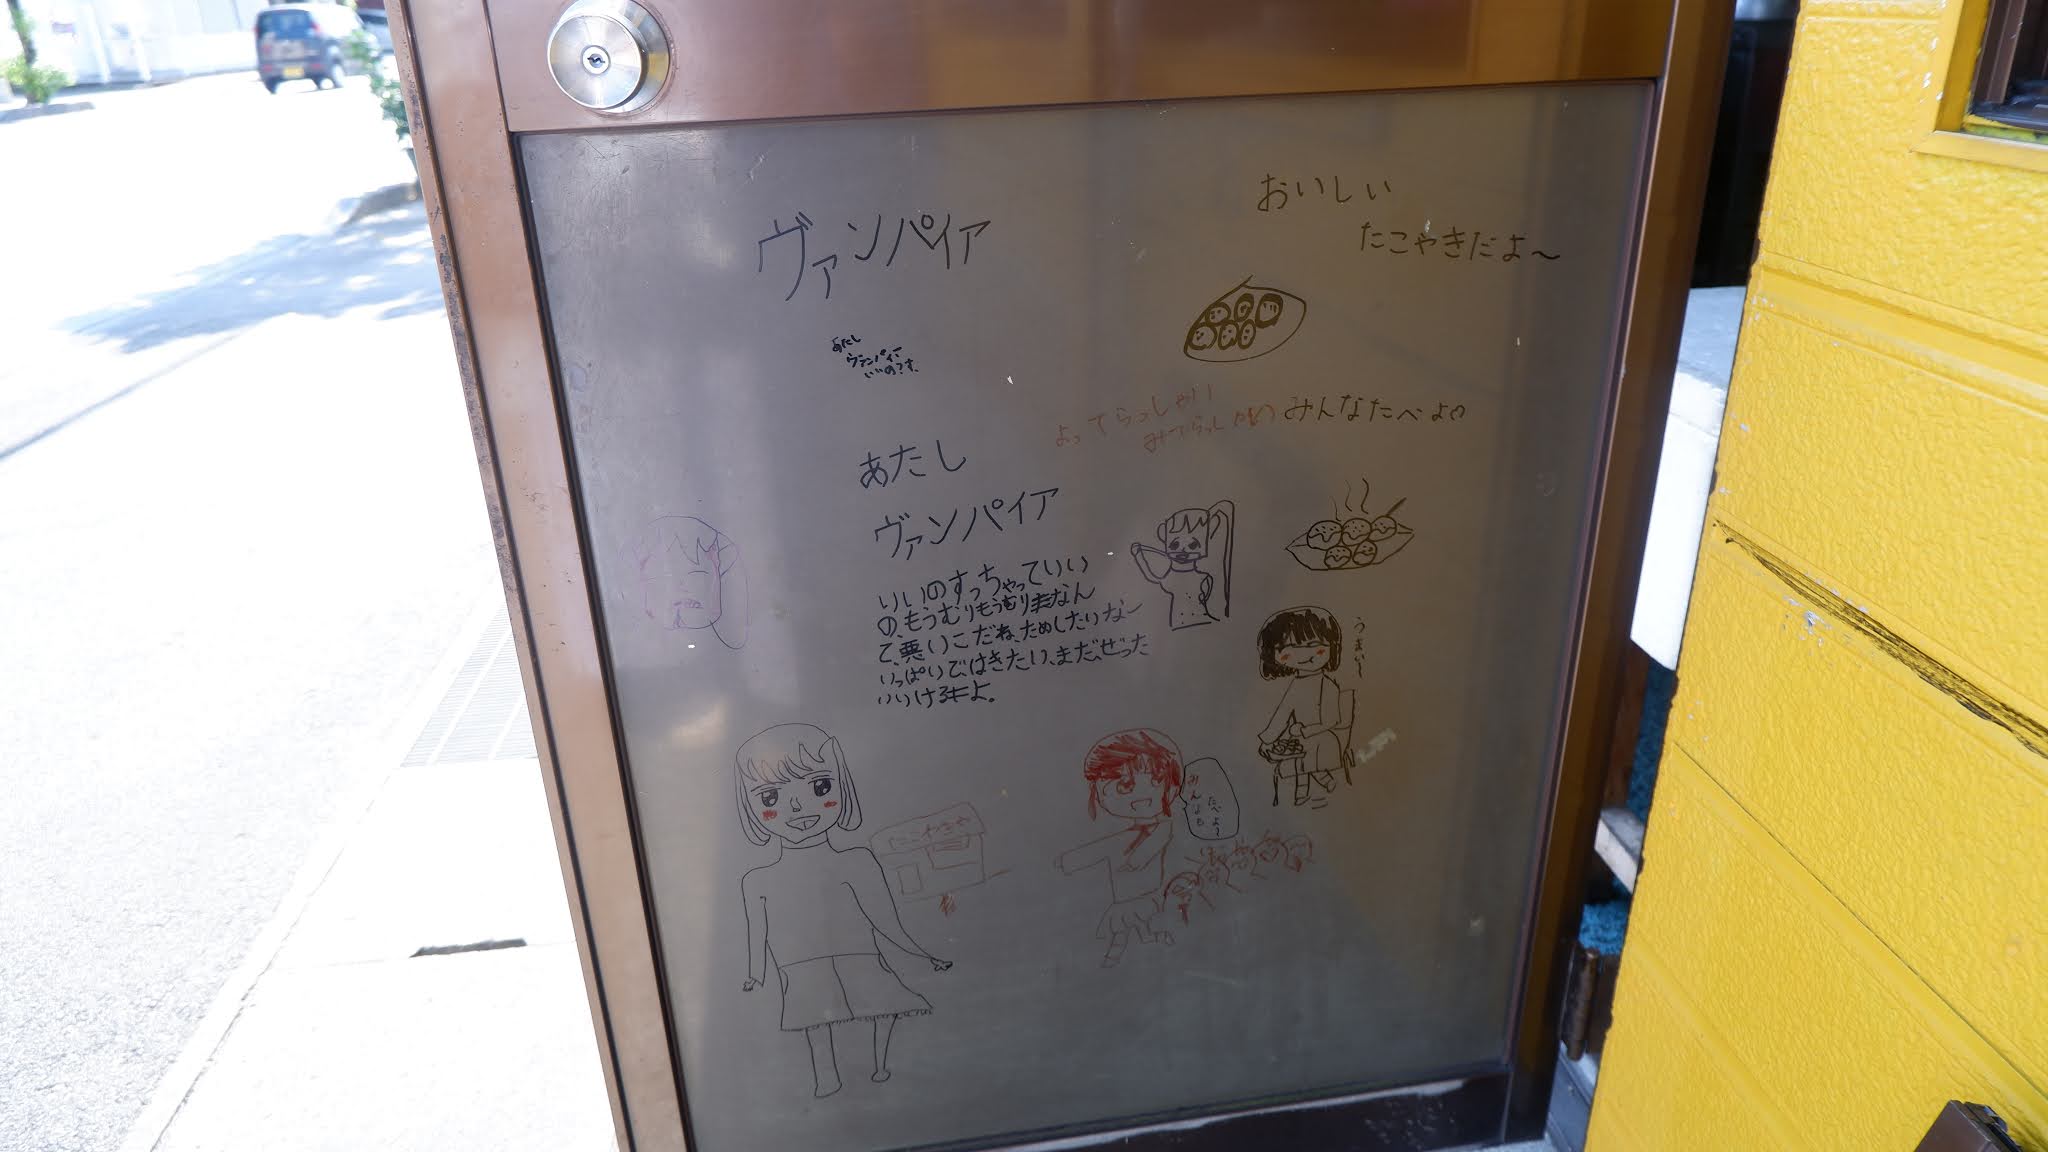 ヴァンパイア
おいしい
たこやきだよ〜
あたし
ヴァンパイア
いいの?す、
よってらっしゃい
みてらっしゃい
みんなたべよ
あたし
ヴァンパイア
いいのすっちゃっていい
の、もうむりもうむりまなん
て、悪いこだね、ためしたいな〜
いっぱいで、はきたい、まだ、ぜった
いいける年よ。
うまい〜
みんなも
たべよ〜
たこやきや